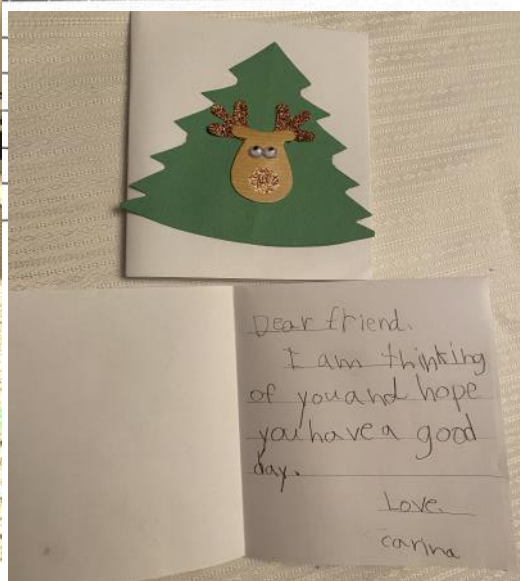 Dear friend.
I am thinking
of you and hope
you have a good
day.
Love.
carina